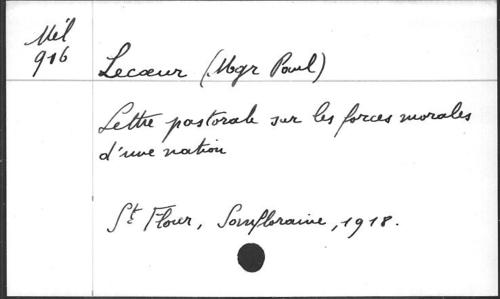 Mél
916
Lecœur (Mgr Paul)
Lettre pastorale sur les forces morales
d'une nation
St Flour, Sanfloraine, 1918.